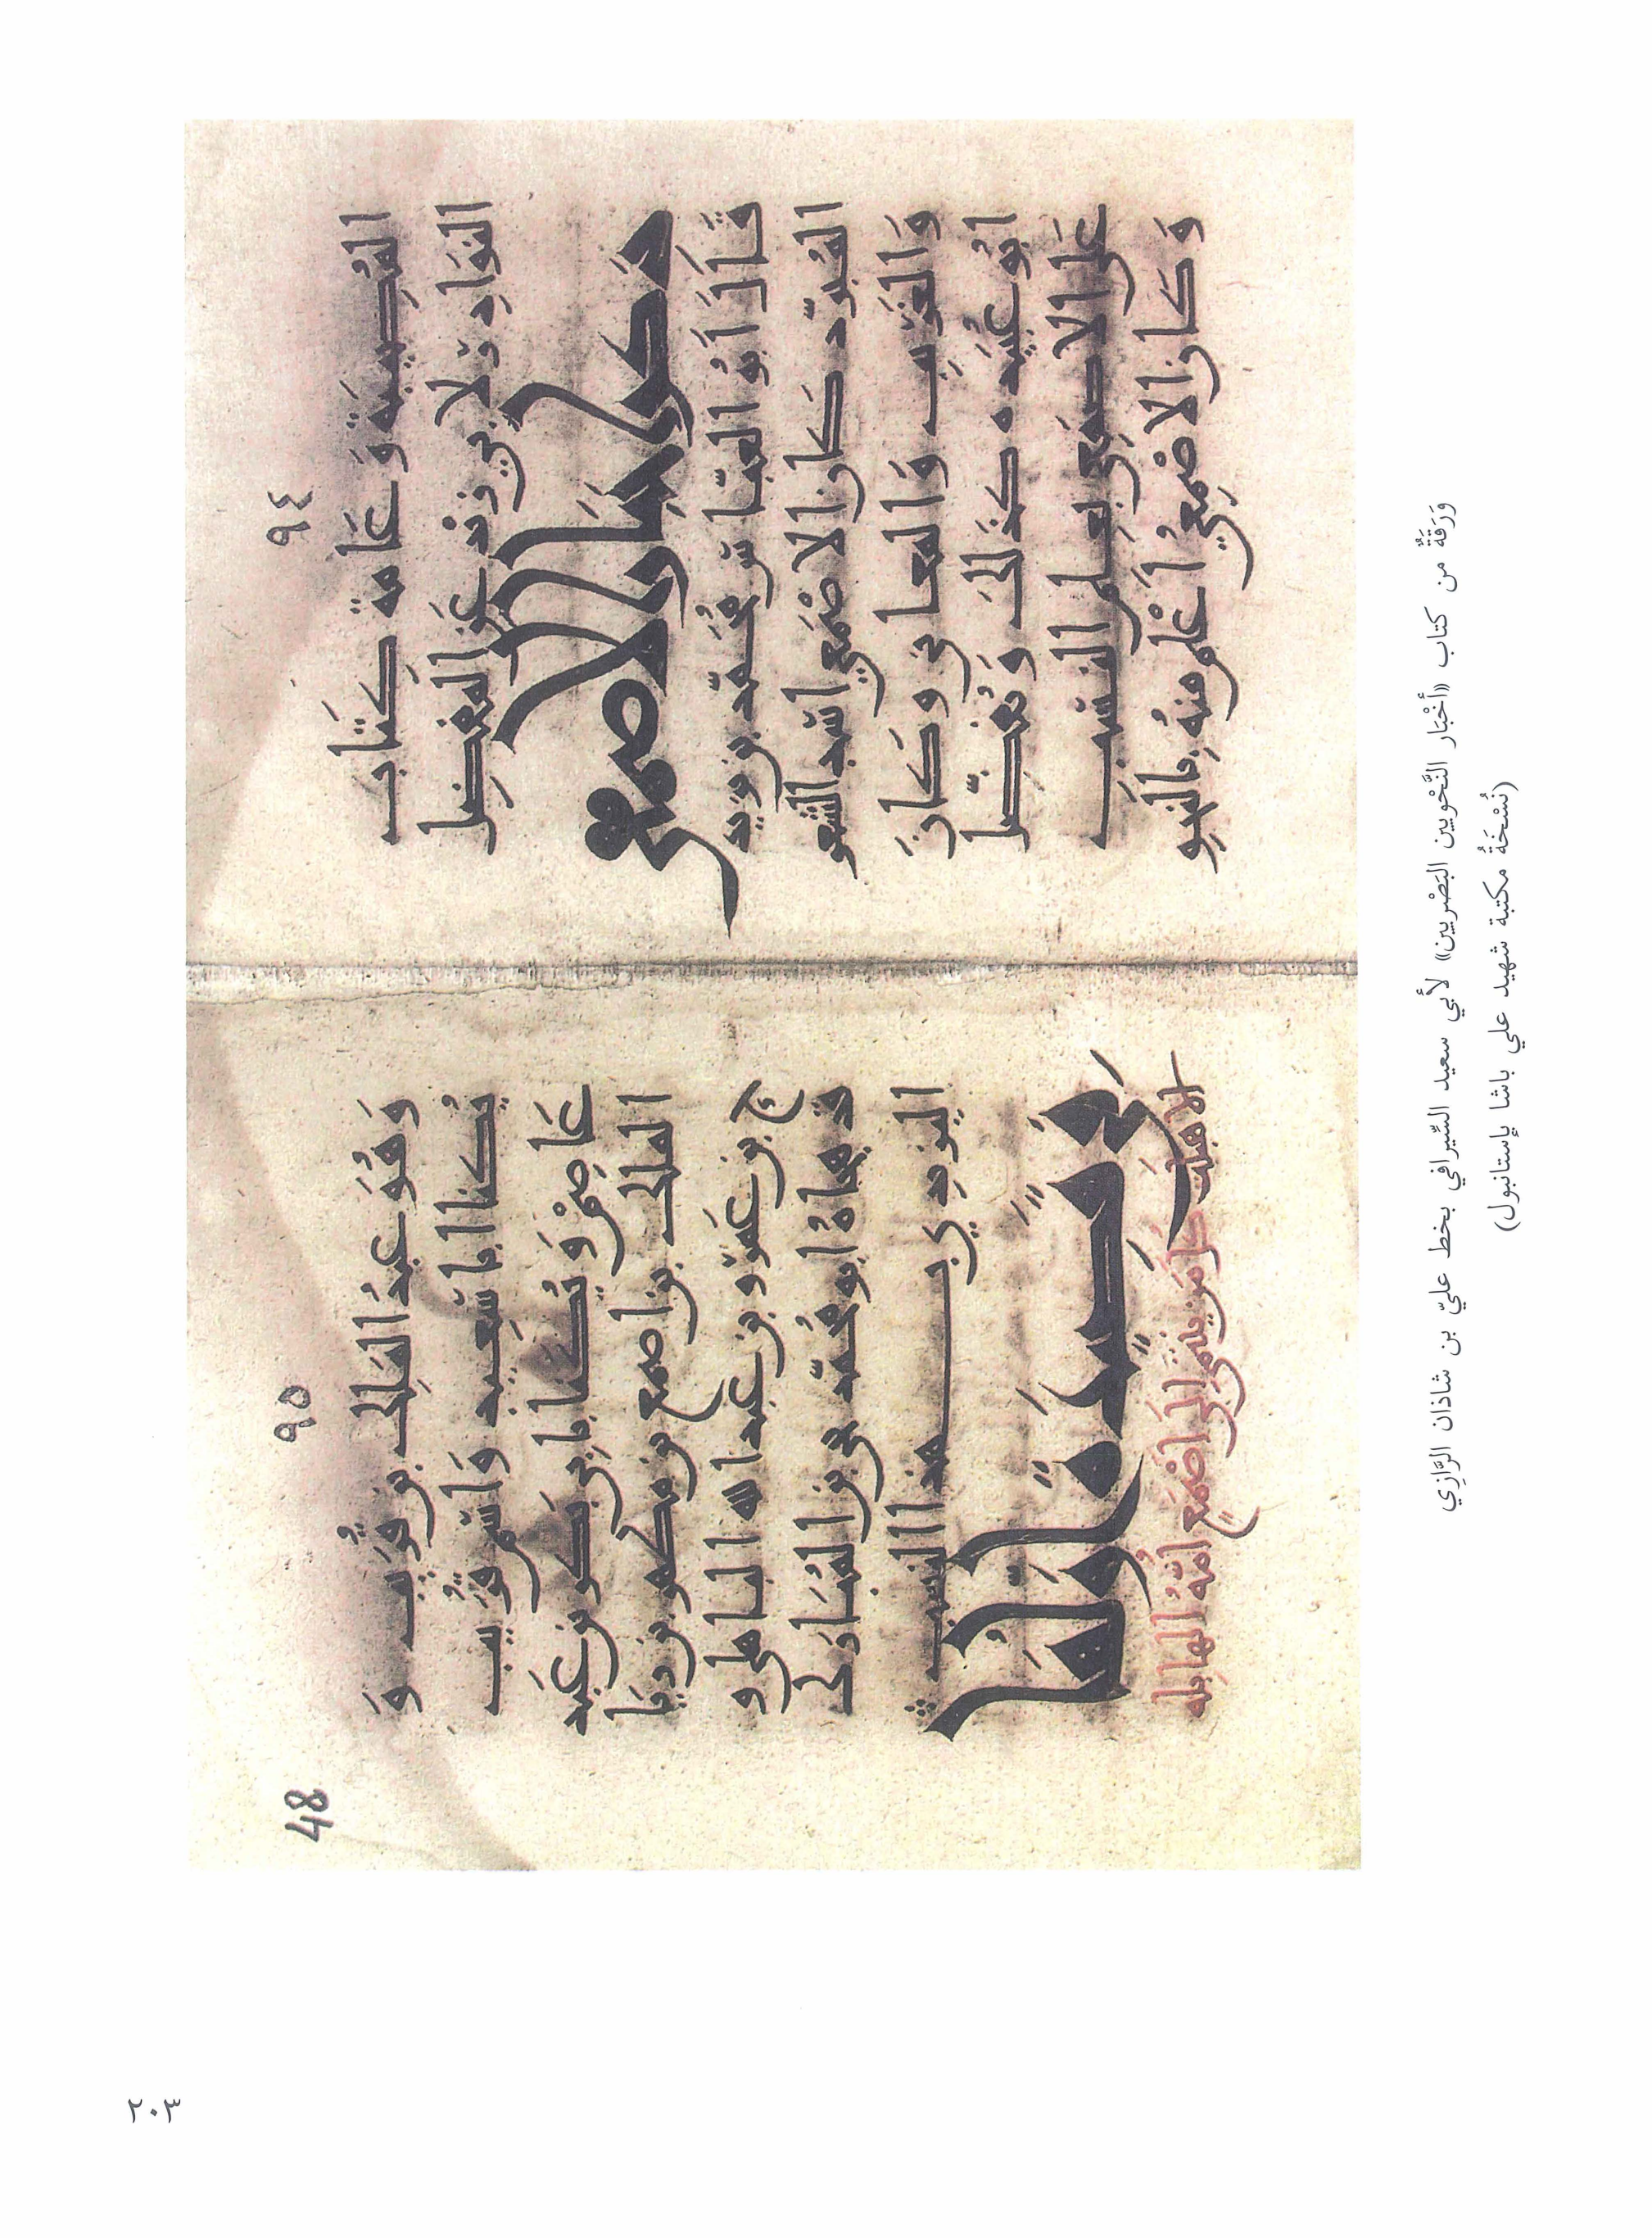 ٩٤
وعامة كتاب
النوادر لابي زيد عن المفضل
ذكر اخبار الاصمعي
قال ابو العباس محمد بن يزيد
المبرد كان الاصمعي اسد الشعر
والغريب والمعاني وكان
ابو عبيده كذلك ويفضل
على الاصمعي بعلم النسب
وكان الاصمعي اعلم منه بالنحو
٩٥
48
وهو عبد الملك بن قريب و
يكنا ابا سعيد واسم قريب
عاصم ويكنا بابي بكر بن عبد
الملك بن اصمع بن مظهر بن ريا
ح بن عمرو بن عبد الله الباهلي و
قد هجاه ابو محمد يحيى بن المبارك
اليزيدي بهذا النسب
في قصيدة اولها
الا هبلت كل من ينتمي الى اصمع امه الهابله
وَرَقَةٌ من كتاب «أخْبَار النَّحْويين البَصْريين» لأبي سعيد السِّيرافي بخط عليّ بن شاذان الرَّازِي
(نُسْخَةُ مكتبة شهيد علي باشا بإستانبول)
٢٠٣